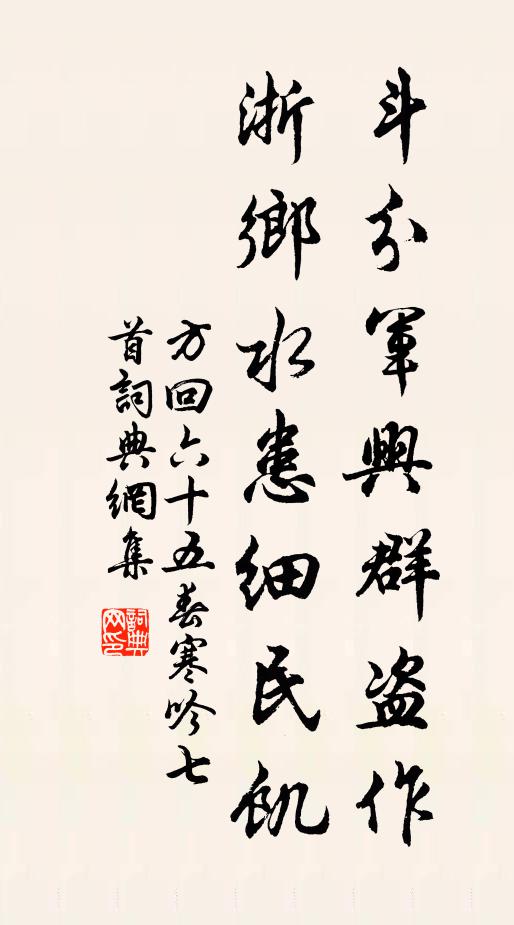 斗分軍興群盗作
浙鄉水患細民飢
方回六十五春寒吟七
首詞典網集
詞典網印